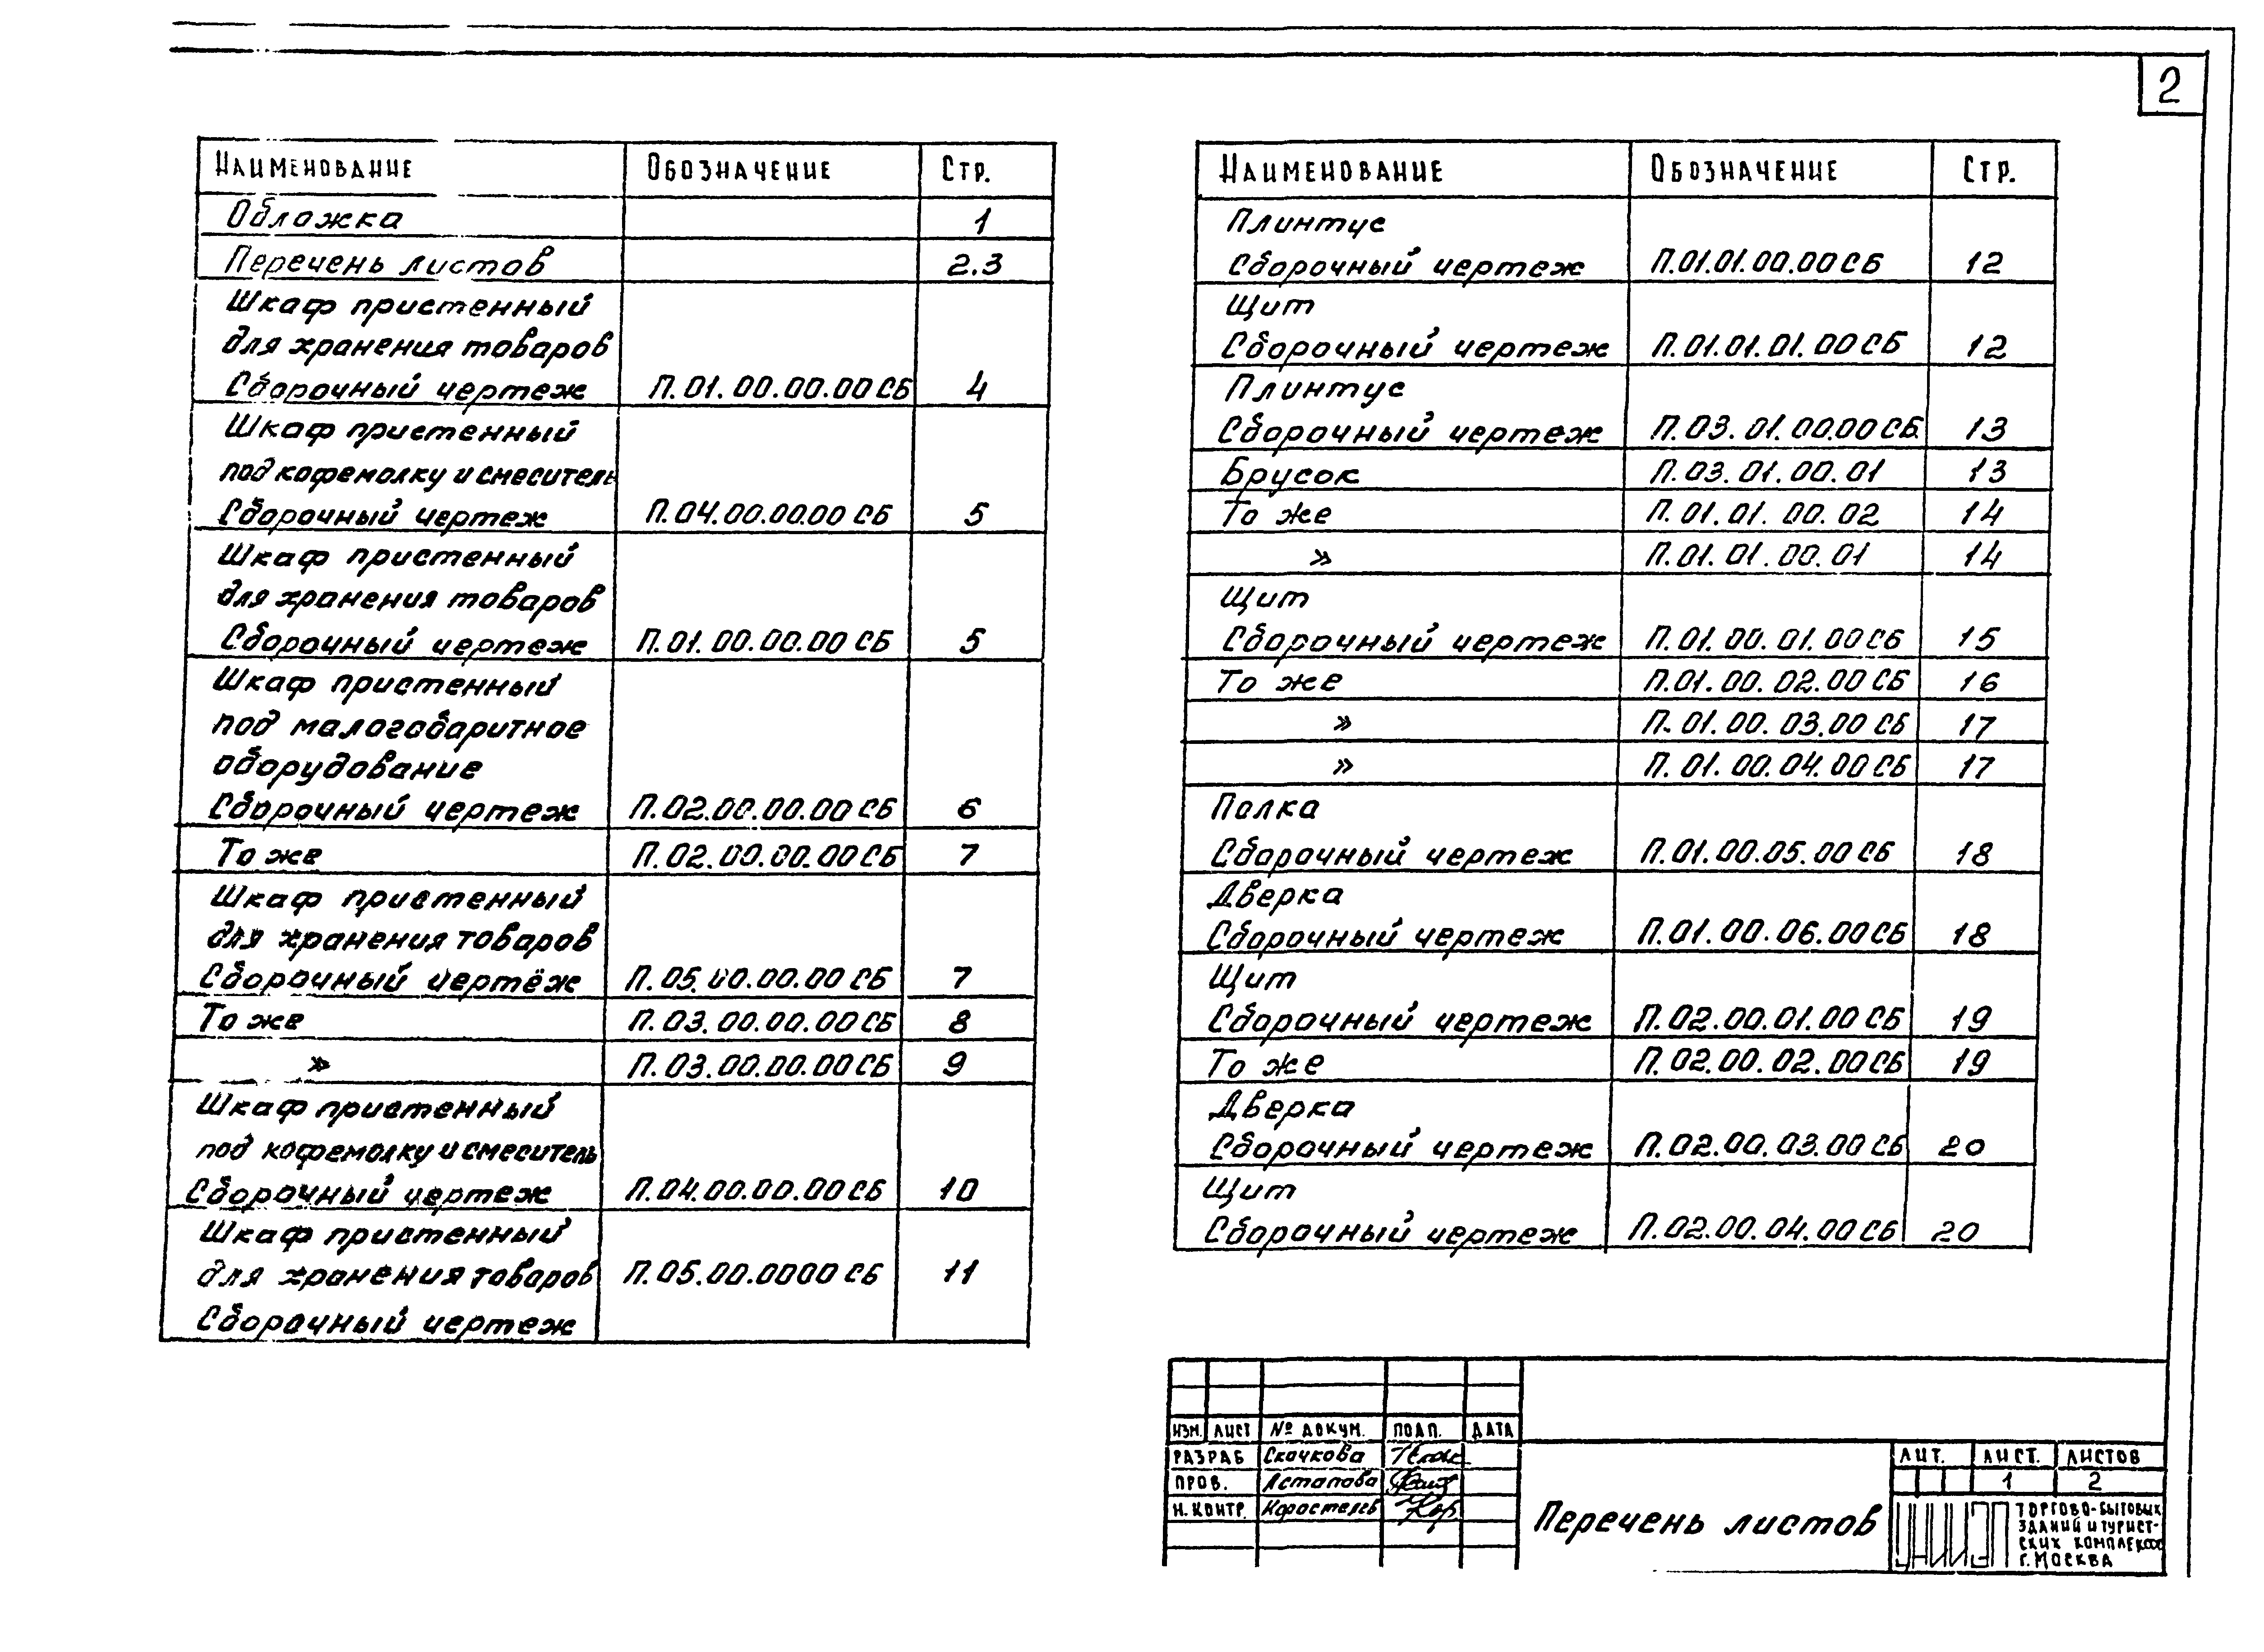 2
Наименование Обозначение Стр.
Обложка 1
Перечень листов 2.3
Шкаф пристенный
для хранения товаров
Сборочный чертеж П.01.00.00.00 СБ 4
Шкаф пристенный
под кофемолку и смеситель
Сборочный чертеж П.04.00.00.00 СБ 5
Шкаф пристенный
для хранения товаров
Сборочный чертеж П.01.00.00.00 СБ 5
Шкаф пристенный
под малогабаритное
оборудование
Сборочный чертеж П.02.00.00.00 СБ 6
То же П.02.00.00.00 СБ 7
Шкаф пристенный
для хранения товаров
Сборочный чертёж П.05.00.00.00 СБ 7
То же П.03.00.00.00 СБ 8
» П.03.00.00.00 СБ 9
Шкаф пристенный
под кофемолку и смеситель
Сборочный чертеж П.04.00.00.00 СБ 10
Шкаф пристенный
для хранения товаров П.05.00.0000 СБ 11
Сборочный чертеж
Наименование Обозначение Стр.
Плинтус
Сборочный чертеж П.01.01.00.00 СБ 12
Щит
Сборочный чертеж П.01.01.01.00 СБ 12
Плинтус
Сборочный чертеж П.03.01.00.00 СБ. 13
Брусок П.03.01.00.01 13
То же П.01.01.00.02 14
» П.01.01.00.01 14
Щит
Сборочный чертеж П.01.00.01.00 СБ 15
То же П.01.00.02.00 СБ 16
» П.01.00.03.00 СБ 17
» П.01.00.04.00 СБ 17
Полка
Сборочный чертеж П.01.00.05.00 СБ 18
Дверка
Сборочный чертеж П.01.00.06.00 СБ 18
Щит
Сборочный чертеж П.02.00.01.00 СБ 19
То же П.02.00.02.00 СБ 19
Дверка
Сборочный чертеж П.02.00.03.00 СБ 20
Щит
Сборочный чертеж П.02.00.04.00 СБ 20
Изм. Лист № докум. Подп. Дата
Разраб Скачкова
Пров. Астапова
Н.контр. Коростелев
Перечень листов
Лит. Лист. Листов
1 2
ЦНИИЭП
торгово-бытовых
зданий и турист-
ских комплексов
г. Москва